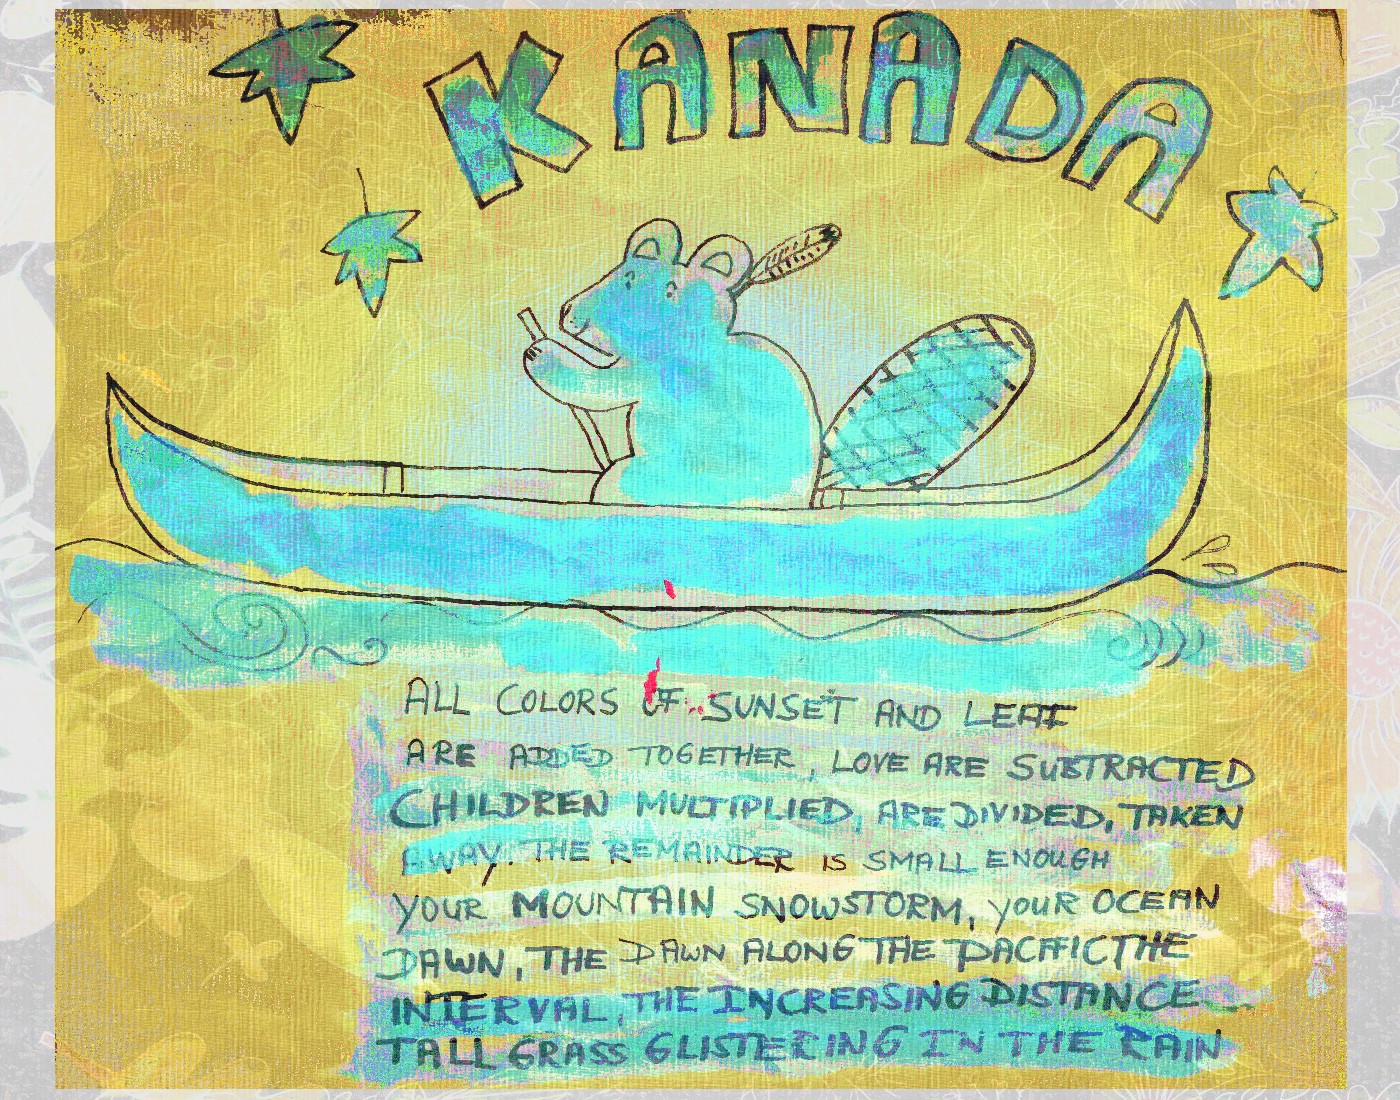 KANADA
ALL COLORS OF SUNSET AND LEAF
ARE ADDED TOGETHER, LOVE ARE SUBTRACTED
CHILDREN MULTIPLIED, ARE DIVIDED, TAKEN
AWAY. THE REMAINDER IS SMALL ENOUGH
YOUR MOUNTAIN SNOWSTORM, YOUR OCEAN
DAWN, THE DAWN ALONG THE PACIFIC THE
INTERVAL, THE INCREASING DISTANCE
TALL GRASS GLISTERING IN THE RAIN